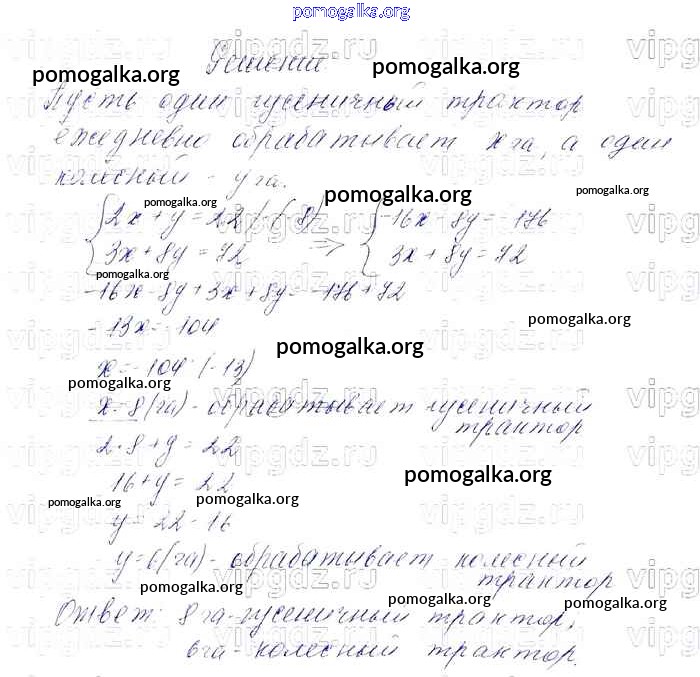 pomogalka.org
vipgdz.ru
Решение.
pomogalka.org pomogalka.org
Пусть один гусеничный трактор
ежедневно обрабатывает x га, а один
колёсный - y га.
pomogalka.org pomogalka.org pomogalka.org
{2x + y = 22 | · (-8) => {-16x - 8y = -176
{3x + 8y = 72 {3x + 8y = 72
pomogalka.org
-16x - 8y + 3x + 8y = -176 + 72
-13x = -104
pomogalka.org
x = -104 : (-13)
pomogalka.org
pomogalka.org
x = 8 (га) - обрабатывает гусеничный
трактор
2 · 8 + y = 22
16 + y = 22
pomogalka.org
pomogalka.org pomogalka.org
y = 22 - 16
y = 6 (га) - обрабатывает колесный
трактор
pomogalka.org pomogalka.org pomogalka.org
Ответ: 8 га - гусеничный трактор,
6 га - колесный трактор.